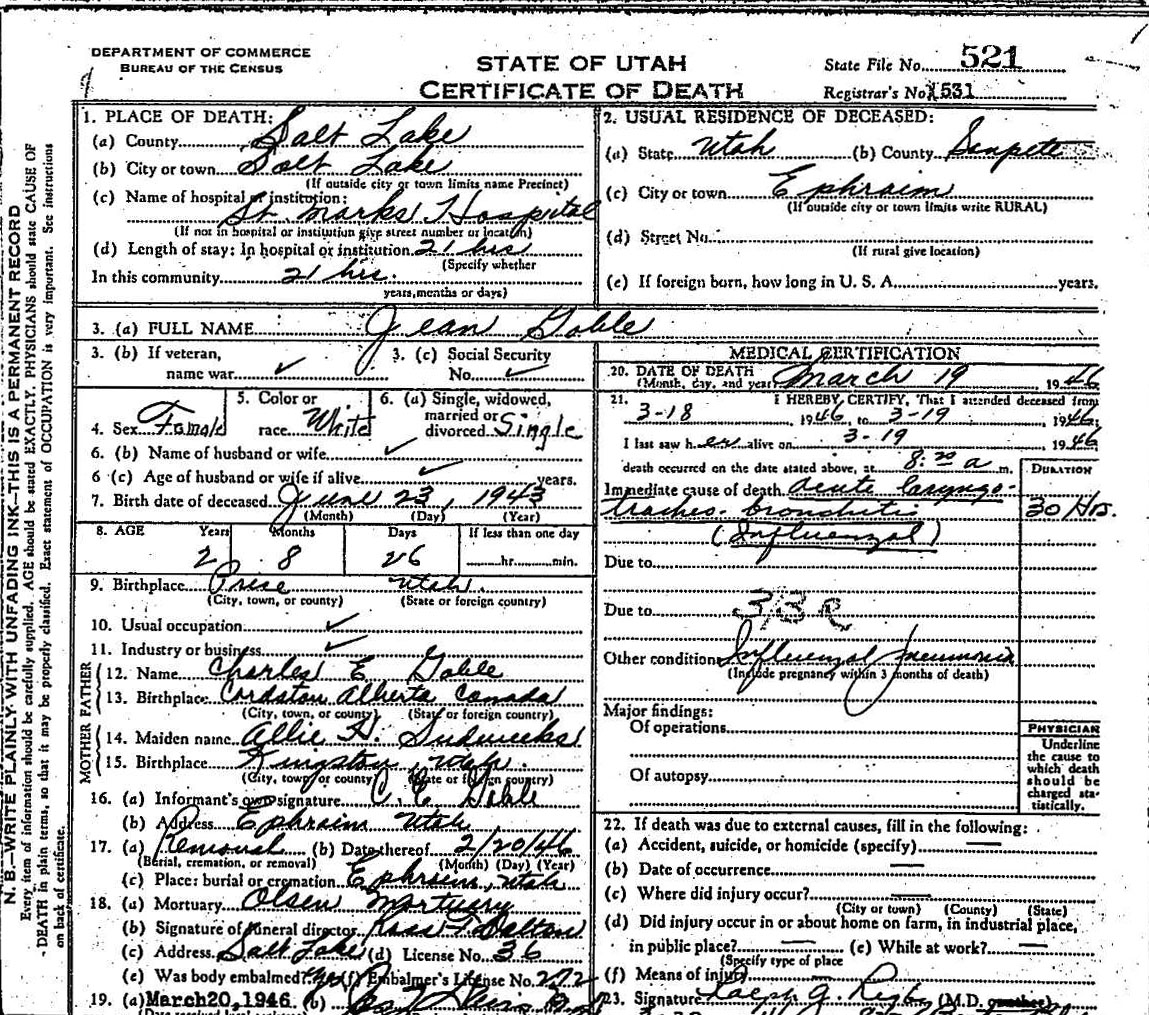 DEPARTMENT OF COMMERCE
BUREAU OF THE CENSUS
STATE OF UTAH
CERTIFICATE OF DEATH
State File No. 521
Registrar's No. 531
N. B.—WRITE PLAINLY WITH UNFADING INK—THIS IS A PERMANENT RECORD
Every item of information should be carefully supplied. AGE should be stated EXACTLY. PHYSICIANS should state CAUSE OF
DEATH in plain terms, so that it may be properly classified. Exact statement of OCCUPATION is very important. See instructions
on back of certificate.
1. PLACE OF DEATH:
(a) County Salt Lake
(b) City or town Salt Lake
(If outside city or town limits name Precinct)
(c) Name of hospital or institution:
St. Marks Hospital
(If not in hospital or institution give street number or location)
(d) Length of stay: In hospital or institution 21 hrs
(Specify whether
In this community 21 hrs.
years, months or days)
2. USUAL RESIDENCE OF DECEASED:
(a) State Utah (b) County Sanpete
(c) City or town Ephraim
(If outside city or town limits write RURAL)
(d) Street No.
(If rural give location)
(e) If foreign born, how long in U. S. A. years.
3. (a) FULL NAME Jean Goble
3. (b) If veteran,
name war ✓
3. (c) Social Security
No. ✓
4. Sex Female
5. Color or
race White
6. (a) Single, widowed,
married or
divorced Single
6. (b) Name of husband or wife ✓
6 (c) Age of husband or wife if alive ✓ years.
7. Birth date of deceased June 23, 1943
(Month) (Day) (Year)
8. AGE Years Months Days If less than one day
2 8 26 hr. min.
9. Birthplace Price Utah.
(City, town, or county) (State or foreign country)
10. Usual occupation ✓
11. Industry or business ✓
FATHER
12. Name Charles E Goble
13. Birthplace Cardston Alberta Canada
(City, town, or county) (State or foreign country)
MOTHER
14. Maiden name Allie H. Sudweeks
15. Birthplace Kingston, Utah.
(City, town, or county) (State or foreign country)
16. (a) Informant's own signature C. E. Goble
(b) Address Ephraim Utah
17. (a) Removal (b) Date thereof 2/20/46
(Burial, cremation, or removal) (Month) (Day) (Year)
(c) Place: burial or cremation Ephraim, Utah
18. (a) Mortuary Olsen Mortuary
(b) Signature of funeral director Dalton
(c) Address Salt Lake (d) License No. 36
(e) Was body embalmed? yes (f) Embalmer's License No. 272
19. (a) March 20, 1946 (b)
MEDICAL CERTIFICATION
20. DATE OF DEATH
(Month, day, and year) March 19, 1946
21. I HEREBY CERTIFY, That I attended deceased from
3-18, 1946, to 3-19, 1946,
I last saw her alive on 3-19 1946
death occurred on the date stated above, at 8:30 a m.
DURATION
Immediate cause of death acute laryngo-
tracheo-bronchitis 30 Hrs.
(Influenzal)
Due to
Due to 33 R
Other conditions Influenzal Pneumonia
(Include pregnancy within 3 months of death)
Major findings:
Of operations
Of autopsy
PHYSICIAN
Underline
the cause to
which death
should be
charged sta-
tistically.
22. If death was due to external causes, fill in the following:
(a) Accident, suicide, or homicide (specify) —
(b) Date of occurrence —
(c) Where did injury occur? —
(City or town) (County) (State)
(d) Did injury occur in or about home on farm, in industrial place,
in public place? — (e) While at work? —
(Specify type of place
(f) Means of injury —
23. Signature Ralph G. (M.D.